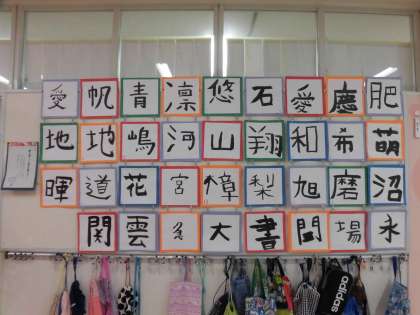 愛帆青凛悠石愛應肥
地地嶋河山翔和希萌
暉道花宮樟梨旭磨沼
関雲大書場永
adidas